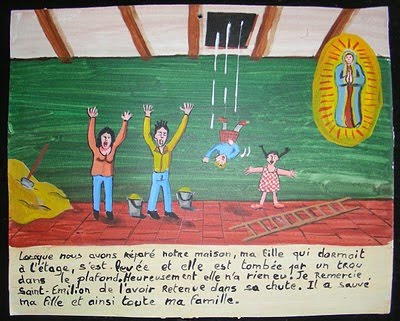 Lorsque nous avons réparé notre maison, ma fille qui dormait
à l'étage, s'est levée et elle est tombée par un trou
dans le plafond. Heureusement elle n'a rien eu. Je Remercie
Saint-Emilion de l'avoir Retenue dans sa chute. Il a sauvé
ma fille et ainsi toute ma famille.